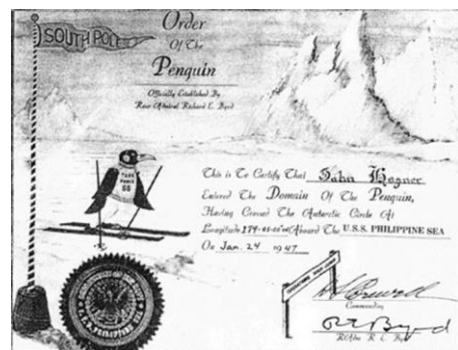 SOUTH POLE
Order
Of The
Penguin
Officially Established By
Rear Admiral Richard E. Byrd
TASK
FORCE
68
This is To Certify That John Wagner
Entered The Domain Of The Penguin,
Having Crossed The Antarctic Circle At
Longitude Aboard The U.S.S. PHILIPPINE SEA
On Jan. 24 1947
Commanding
R E Byrd
R. E. Byrd
U.S.S. PHILIPPINE SEA